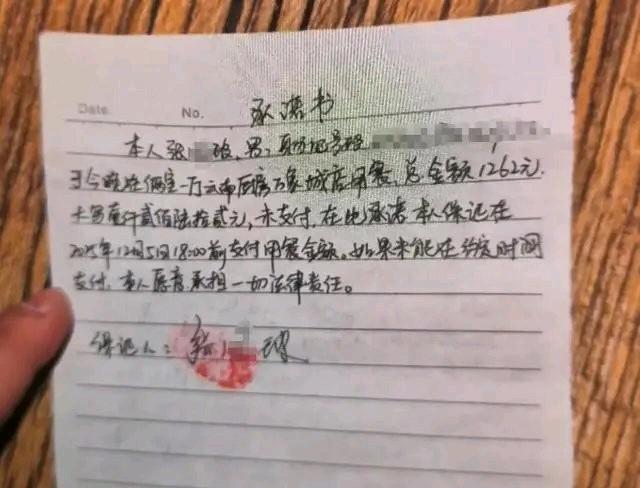 Date. No. 承诺书
本人张 波,男,身份证号码
于今晚在 一万 万象城店用餐,总金额1262元.
大写壹仟贰佰陆拾贰元,未支付,在此承诺本人保证在
2025年12月5日18:00前支付用餐金额。如果未能在约定时间
支付,本人愿意承担一切法律责任。
保证人: 张 波